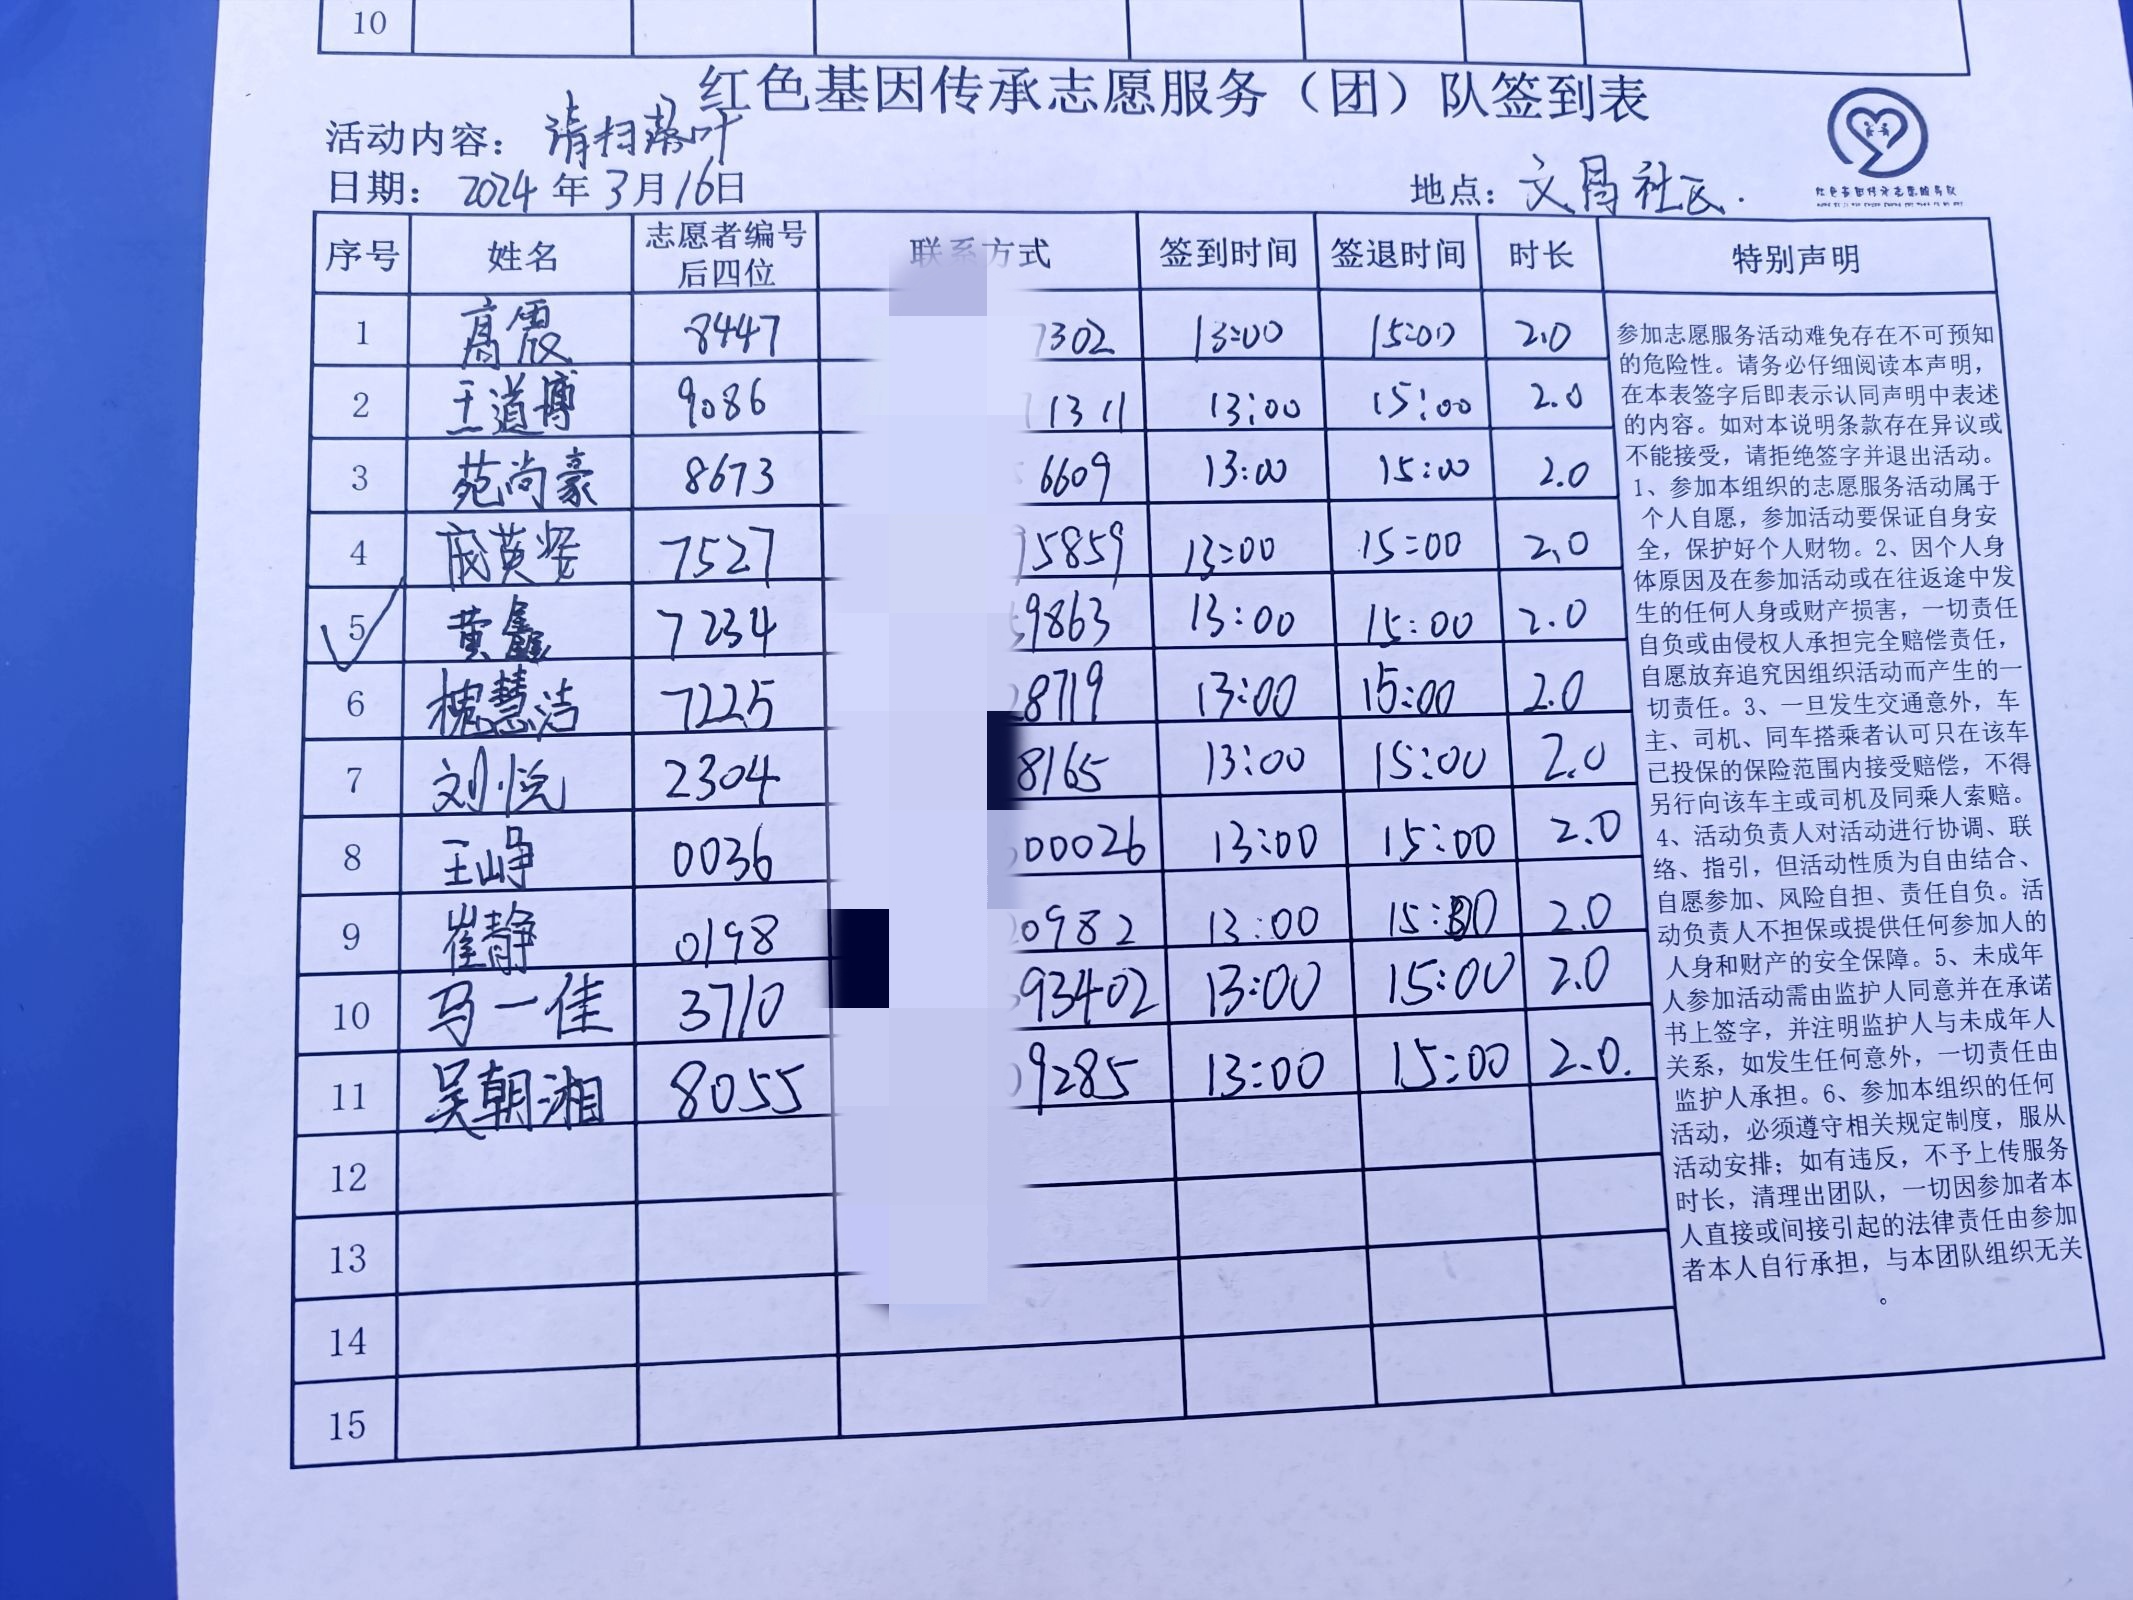 10
红色基因传承志愿服务（团）队签到表
活动内容：清扫落叶
日期：2024年3月16日 地点：文昌社区.
序号 姓名 志愿者编号后四位 联系方式 签到时间 签退时间 时长 特别声明
1 高霞 8447 7302 13:00 15:00 2.0
2 王道博 9086 11311 13:00 15:00 2.0
3 苑尚豪 8673 6609 13:00 15:00 2.0
4 7527 5859 13:00 15:00 2.0
5 黄鑫 7234 9863 13:00 15:00 2.0
6 槐慧洁 7225 28719 13:00 15:00 2.0
7 刘悦 2304 8165 13:00 15:00 2.0
8 王峥 0036 00026 13:00 15:00 2.0
9 崔静 0198 0982 13:00 15:00 2.0
10 马一佳 3710 93402 13:00 15:00 2.0
11 吴朝湘 8055 9285 13:00 15:00 2.0.
12
13
14
15
参加志愿服务活动难免存在不可预知
的危险性。请务必仔细阅读本声明，
在本表签字后即表示认同声明中表述
的内容。如对本说明条款存在异议或
不能接受，请拒绝签字并退出活动。
1、参加本组织的志愿服务活动属于
个人自愿，参加活动要保证自身安
全，保护好个人财物。2、因个人身
体原因及在参加活动或在往返途中发
生的任何人身或财产损害，一切责任
自负或由侵权人承担完全赔偿责任，
自愿放弃追究因组织活动而产生的一
切责任。3、一旦发生交通意外，车
主、司机、同车搭乘者认可只在该车
已投保的保险范围内接受赔偿，不得
另行向该车主或司机及同乘人索赔。
4、活动负责人对活动进行协调、联
络、指引，但活动性质为自由结合、
自愿参加、风险自担、责任自负。活
动负责人不担保或提供任何参加人的
人身和财产的安全保障。5、未成年
人参加活动需由监护人同意并在承诺
书上签字，并注明监护人与未成年人
关系，如发生任何意外，一切责任由
监护人承担。6、参加本组织的任何
活动，必须遵守相关规定制度，服从
活动安排；如有违反，不予上传服务
时长，清理出团队，一切因参加者本
人直接或间接引起的法律责任由参加
者本人自行承担，与本团队组织无关
。